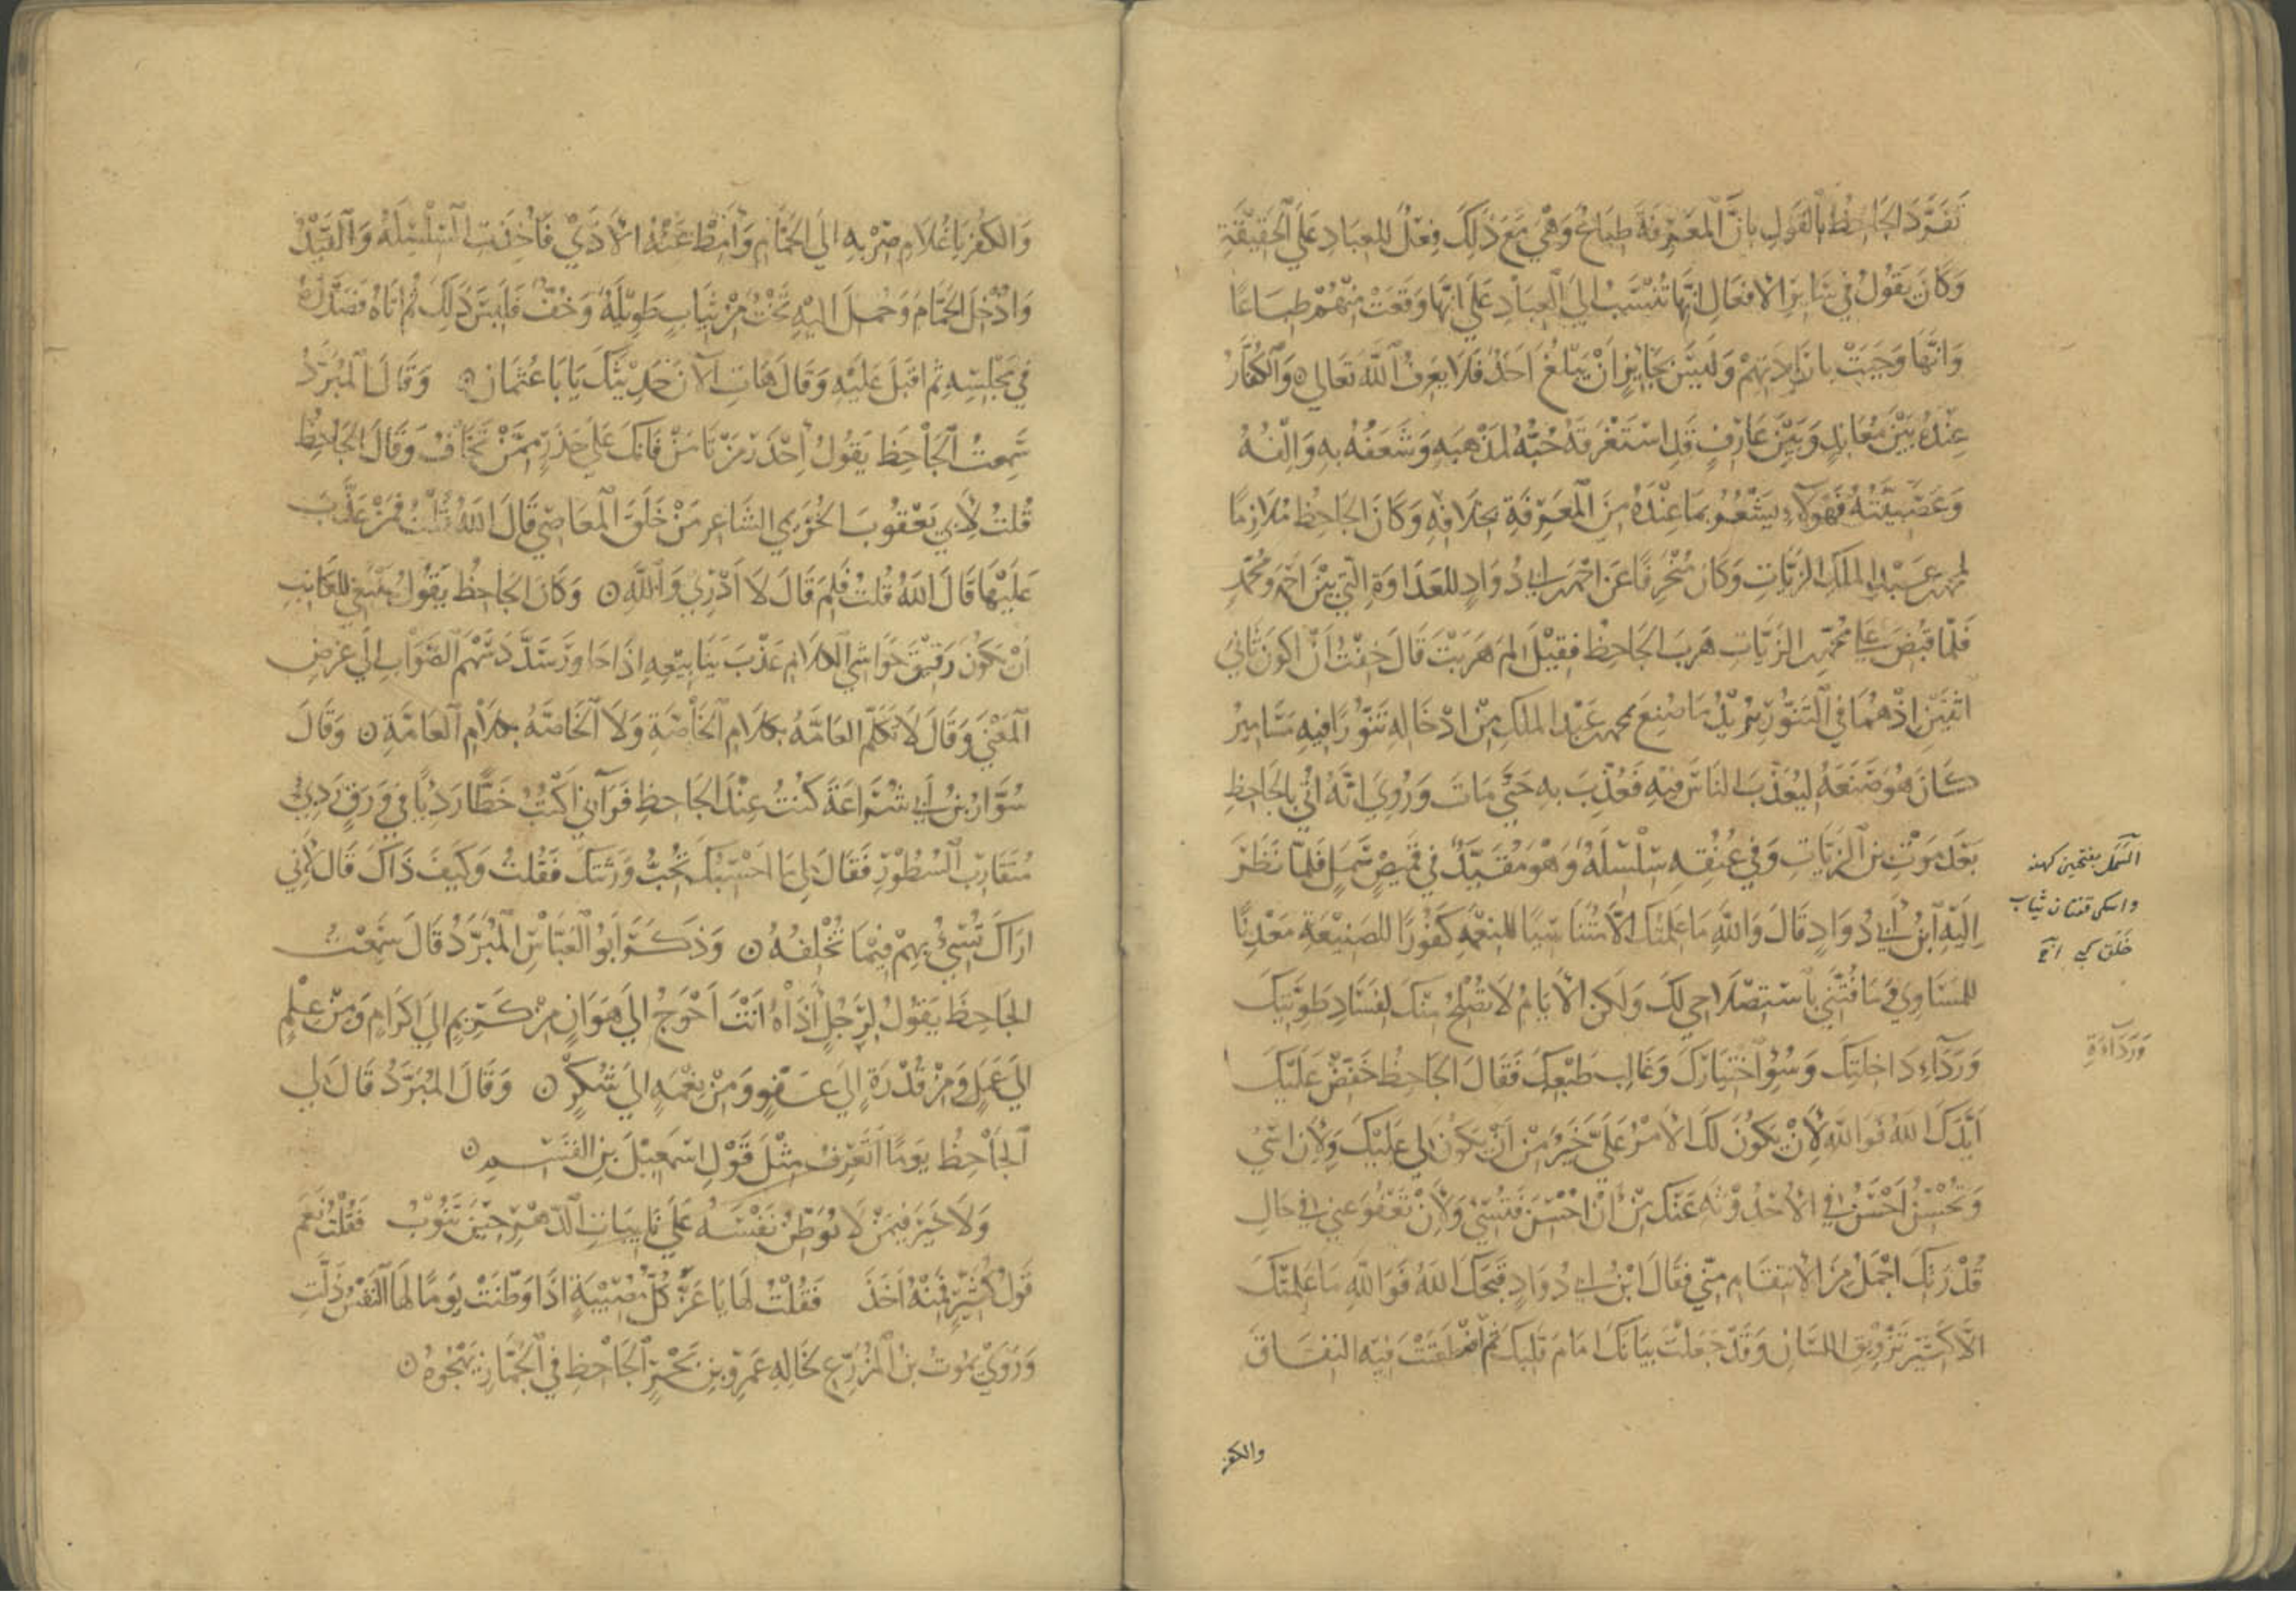 تَفَرَّدَ الجَاحِظُ بِالقَولِ بِانَّ المَعْرِفَةَ طِبَاعٌ وَهْيَ مَعَ ذَلِكَ فِعْلٌ لِلعِبَادِ عَلَى الحَقِيقَةِ
وَكَانَ يَقُولُ فِي سَايِرِ الافعَالِ انَّهَا تُنْسَبُ الَى العِبَادِ عَلَى انَّهَا وَقَعَتْ مِنْهُمْ طِبَاعًا
وَانَّهَا وَجَبَتْ بِارَادَتِهِمْ وَلَيْسَ بِجَايِزٍ انْ يَبْلُغَ احَدٌ فَلَا يَعرِفُ اللهَ تَعَالى ۞ وَالكُفَّارُ
عِنْدَهُ بَيْنَ مُعَانِدٍ وَبَيْنَ عَارِفٍ قَدِ اسْتَغْرَقَهُ حُبُّهُ لِمَذْهَبِهِ وَشَغَفُهُ بِهِ وَالِفُهُ
وَعَصَبِيَّتُهُ فَهَولَاءِ يَشْعُرُ بِمَا عِنْدَهُ مِنَ المَعْرِفَةِ بِخِلَافِهِ وَكَانَ الجَاحِظُ مُلَازِمًا
لمحمد بن عَبْدِ المَلِكِ الزَّيَّاتِ وَكَانَ مُنْحَرِفًا عَنْ احْمَدَ بن ابي دُوَادٍ لِلعَدَاوَةِ الَّتِي بَيْنَ احْمَدَ وَمُحَمَّدٍ
فَلَمَّا قُبِضَ عَلَى مُحَمَّدٍ الزَّيَّاتِ هَرَبَ الجَاحِظُ فَقِيْلَ لِمَ هَرَبْتَ قَالَ خِفْتُ انْ اكُونَ ثَانِيَ
اثْنَيْنِ اذْ هُمَا فِي التَّنُّوْرِ يُرِيْدُ مَا صُنِعَ بمحمد بن عَبْدِ المَلِكِ مِنْ ادْخَالِهِ تَنُّوْرًا فِيهِ مَسَامِيْرُ
كَانَ هُوَ صَنَعَهُ لِيُعَذِّبَ النَّاسَ فِيْهِ فَعُذِّبَ بِهِ حَتَّى مَاتَ وَرُوِيَ انَّهُ اتِيَ بِالجَاحِظِ
بَعْدَ مَوْتِ بن الزَّيَّاتِ وَفِي عُنُقِهِ سِلْسِلَةٌ وَهْوَ مُقَيَّدٌ فِي قَمِيصٍ سَمَلٍ فَلَمَّا نَظَرَ
الَيْهِ ابْنُ ابِي دُوَادٍ قَالَ وَاللهِ مَا عَلِمْتُكَ الَّا مُتَنَاسِيًا لِلنِّعْمَةِ كَفُوْرًا لِلصَّنِيْعَةِ مَعْدِنًا
لِلمَسَاوِي وَمَا فُتَّنِي بِاسْتِصْلَاحِي لَكَ وَلَكِنَّ الايَّامَ لَا تُصْلِحُ مِنْكَ لِفَسَادِ طَوِيَّتِكَ
وَرَدَآءِ دَاخِلَتِكَ وَسُوْ اخْتِيَارِكَ وَغَالِبِ طَبْعِكَ فَقَالَ الجَاحِظُ خَفِّضْ عَلَيْكَ
ايَّدَكَ اللهُ فَوَاللهِ لَانْ يَكُونَ لَكَ الامْرُ عَلَيَّ خَيْرٌ مِنْ انْ يَكُونَ لِي عَلَيْكَ وَلَانْ اسِيْ
وَتُحْسِنُ احْسَنُ فِي الاحْدُوْثَةِ عَنْكَ مِنْ انْ احْسِنَ فَتُسِيْ وَلَانْ تَعْفُوَ عَنِّي فِي حَالِ
قُدْرَتِكَ اجْمَلُ مِنَ الانْتِقَامِ مِنِّي فَقَالَ ابْنُ ابي دُوَادٍ قَبَحَكَ اللهُ فَوَاللهِ مَا عَلِمْتُكَ
الَّا كَثِيْرَ تَزْوِيْقِ اللِّسَانِ وَقَدْ جَعَلْتَ بَيَانَكَ امَامَ قَلْبِكَ ثُمَّ اضْطَغَنْتَ فِيْهِ النِّفَاقَ
والكفر
السمل بفتحين كهنه
واسكى
خلق كبى
وَرَدَآءَةِ
وَالكُفْرَ يَا غُلَام صِرْ بِهِ الَى الحَمَّامِ وَامِطْ عَنْهُ الاذَى فَاخِذَتِ السِّلْسِلَةُ وَالقَيْدُ
وَادْخِلَ الحَمَّامَ وَحُمِلَ الَيْهِ تَخْتٌ مِنْ ثِيَابٍ طَوِيْلَةٌ وَخُفٌّ فَلَبِسَ ذَلِكَ ثُمَّ اتَاهُ فَصَدَّرَهُ
فِي مَجْلِسِهِ ثُمَّ اقْبَلَ عَلَيْهِ وَقَالَ هَاتِ الآنَ حَدِيْثَكَ يَابَا عُثمَانَ ۞ وَقَالَ المُبَرَّدُ
سَمِعْتُ الجَاحِظَ يَقُولُ احْذَرْ مَنْ تَامَنْ فَانَّكَ عَلَى حَذَرٍ مِمَّنْ تَخَافُ وَقَالَ الجَاحِظُ
قُلتُ لِابِي يَعْقُوبَ الخُزَيمِي الشَّاعِرِ مَنْ خَلَقَ المَعَاصِي قَالَ اللهُ قُلْتُ فَمَنْ عَذَّبَ
عَلَيْهَا قَالَ اللهُ قُلْتُ فَلِمَ قَالَ لَا ادْرِي وَاللهِ ۞ وَكَانَ الجَاحِظُ يَقُولُ يَنْبَغِي لِلكَاتِبِ
انْ يَكُونَ رَقِيْقَ حَوَاشِي الكَلَامِ عَذْبَ يَنَابِيْعِهِ اذَا حَاوَرَ سَدَّدَ سَهْمَ الصَّوَابِ الَى غَرَضِ
المَعْنَى وَقَالَ لَا تُكَلِّمِ العَامَّةَ بِكَلَامِ الخَاصَّةِ وَلَا الخَاصَّةَ بِكَلَامِ العَامَّةِ ۞ وَقَالَ
سُوَّارُ بْنُ ابِي شُرَاعَةَ كُنْتُ عِنْدَ الجَاحِظِ فَرَآنِي اكْتُبُ خَطًّا رَدِيًّا فِي وَرَقٍ رَدِيْ
مُتَقَارِبَ السُّطُوْرِ فَقَالَ لِي مَا احْسِبُكَ تُحِبُّ وَرَثَتَكَ فَقُلْتُ وَكَيْفَ ذَاكَ قَالَ لِانِّي
ارَاكَ تُسِيْءُ بِهِمْ فِيْمَا تُخْلِفُهُ ۞ وَذَكَرَ ابُو العَبَّاسِ المُبَرَّدُ قَالَ سَمِعْتُ
الجَاحِظَ يَقُوْلُ لِرَجُلٍ اذَاهُ انْتَ احْوَجُ الَى هَوَانٍ مِنْ كَرِيْمٍ الَى اكْرَامٍ وَمِنْ عِلْمٍ
الَى عَمَلٍ وَمِنْ قُدْرَةٍ الَى عَفْوٍ وَمِنْ نِعْمَةٍ الَى شُكْرٍ ۞ وَقَالَ المُبَرَّدُ قَالَ لِي
الجَاحِظُ يَوْمًا اتَعْرِفُ مِثْلَ قَوْلِ اسْمَعِيْلَ بنِ القسِمِ ۞
وَلَا خَيْرَ فِيْمَنْ لَا يُوَطِّنُ نَفْسَهُ عَلَى نَايِبَاتِ الدَّهْرِ حِيْنَ تَنُوْبُ فَقُلْتُ نَعَمْ
قَوْلُ كُثَيِّرٍ فَمِنْهُ اخَذَ فَقُلْتُ لَهَا يَا عَزَّ كُلُّ مُصِيْبَةٍ اذَا وَطَّنَتْ يَوْمًا لَهَا النَّفْسُ ذَلَّتِ
وَرَوَى يَمُوتُ بْنُ المُزَرِّعِ لِخَالِهِ عَمْرِو بنِ بَحْرٍ الجَاحِظِ فِي الجَمَّازِ يَهْجُوهُ ۞